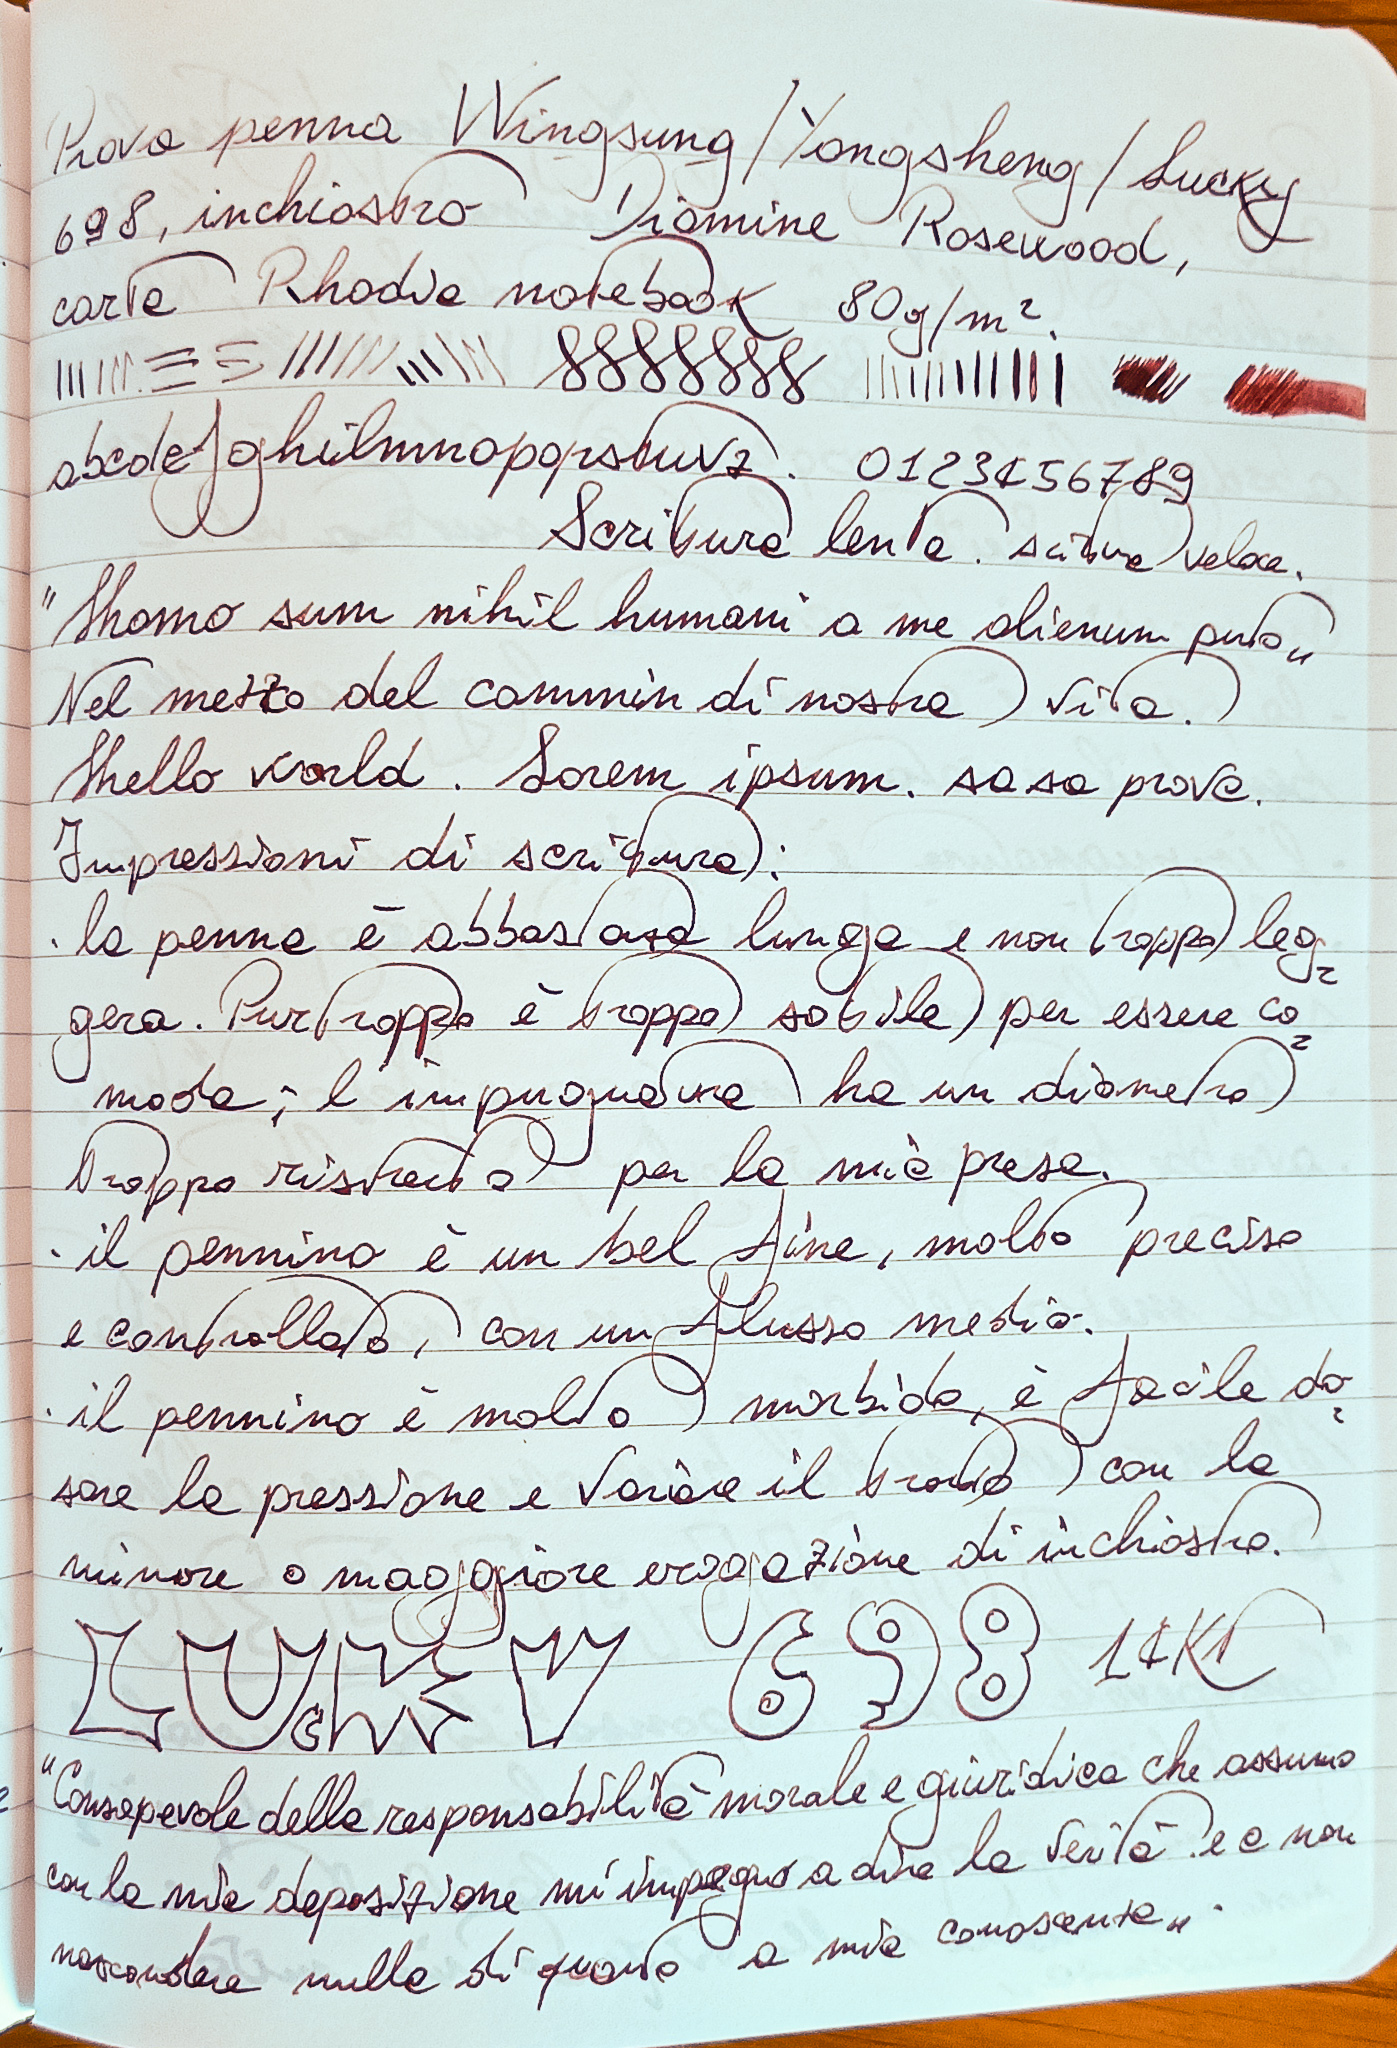 Prova penna Wingsung/Yongsheng/Lucky
698, inchiostro Diamine Rosewood,
carta Rhodia notebook 80g/m².
abcdefghijlmnopqrstuvz. 0123456789
Scrittura lenta. scrittura veloce.
"Homo sum nihil humani a me alienum puto"
Nel mezzo del cammin di nostra vita.
Hello world. Lorem ipsum. sa sa prova.
Impressioni di scrittura:
· la penna è abbastanza lunga e non troppo leg=
gera. Purtroppo è troppo sottile per essere co=
moda; l'impugnatura ha un diametro
troppo ristretto per la mia presa.
· il pennino è un bel fine, molto preciso
e controllato, con un flusso medio.
· il pennino è molto morbido, è facile do=
sare la pressione e variare il tratto con la
minore o maggiore erogazione di inchiostro.
LUCKY 698 14KT
"Consapevole della responsabilità morale e giuridica che assumo
con la mia deposizione mi impegno a dire la verità e a non
nascondere nulla di quanto a mia conoscenza".